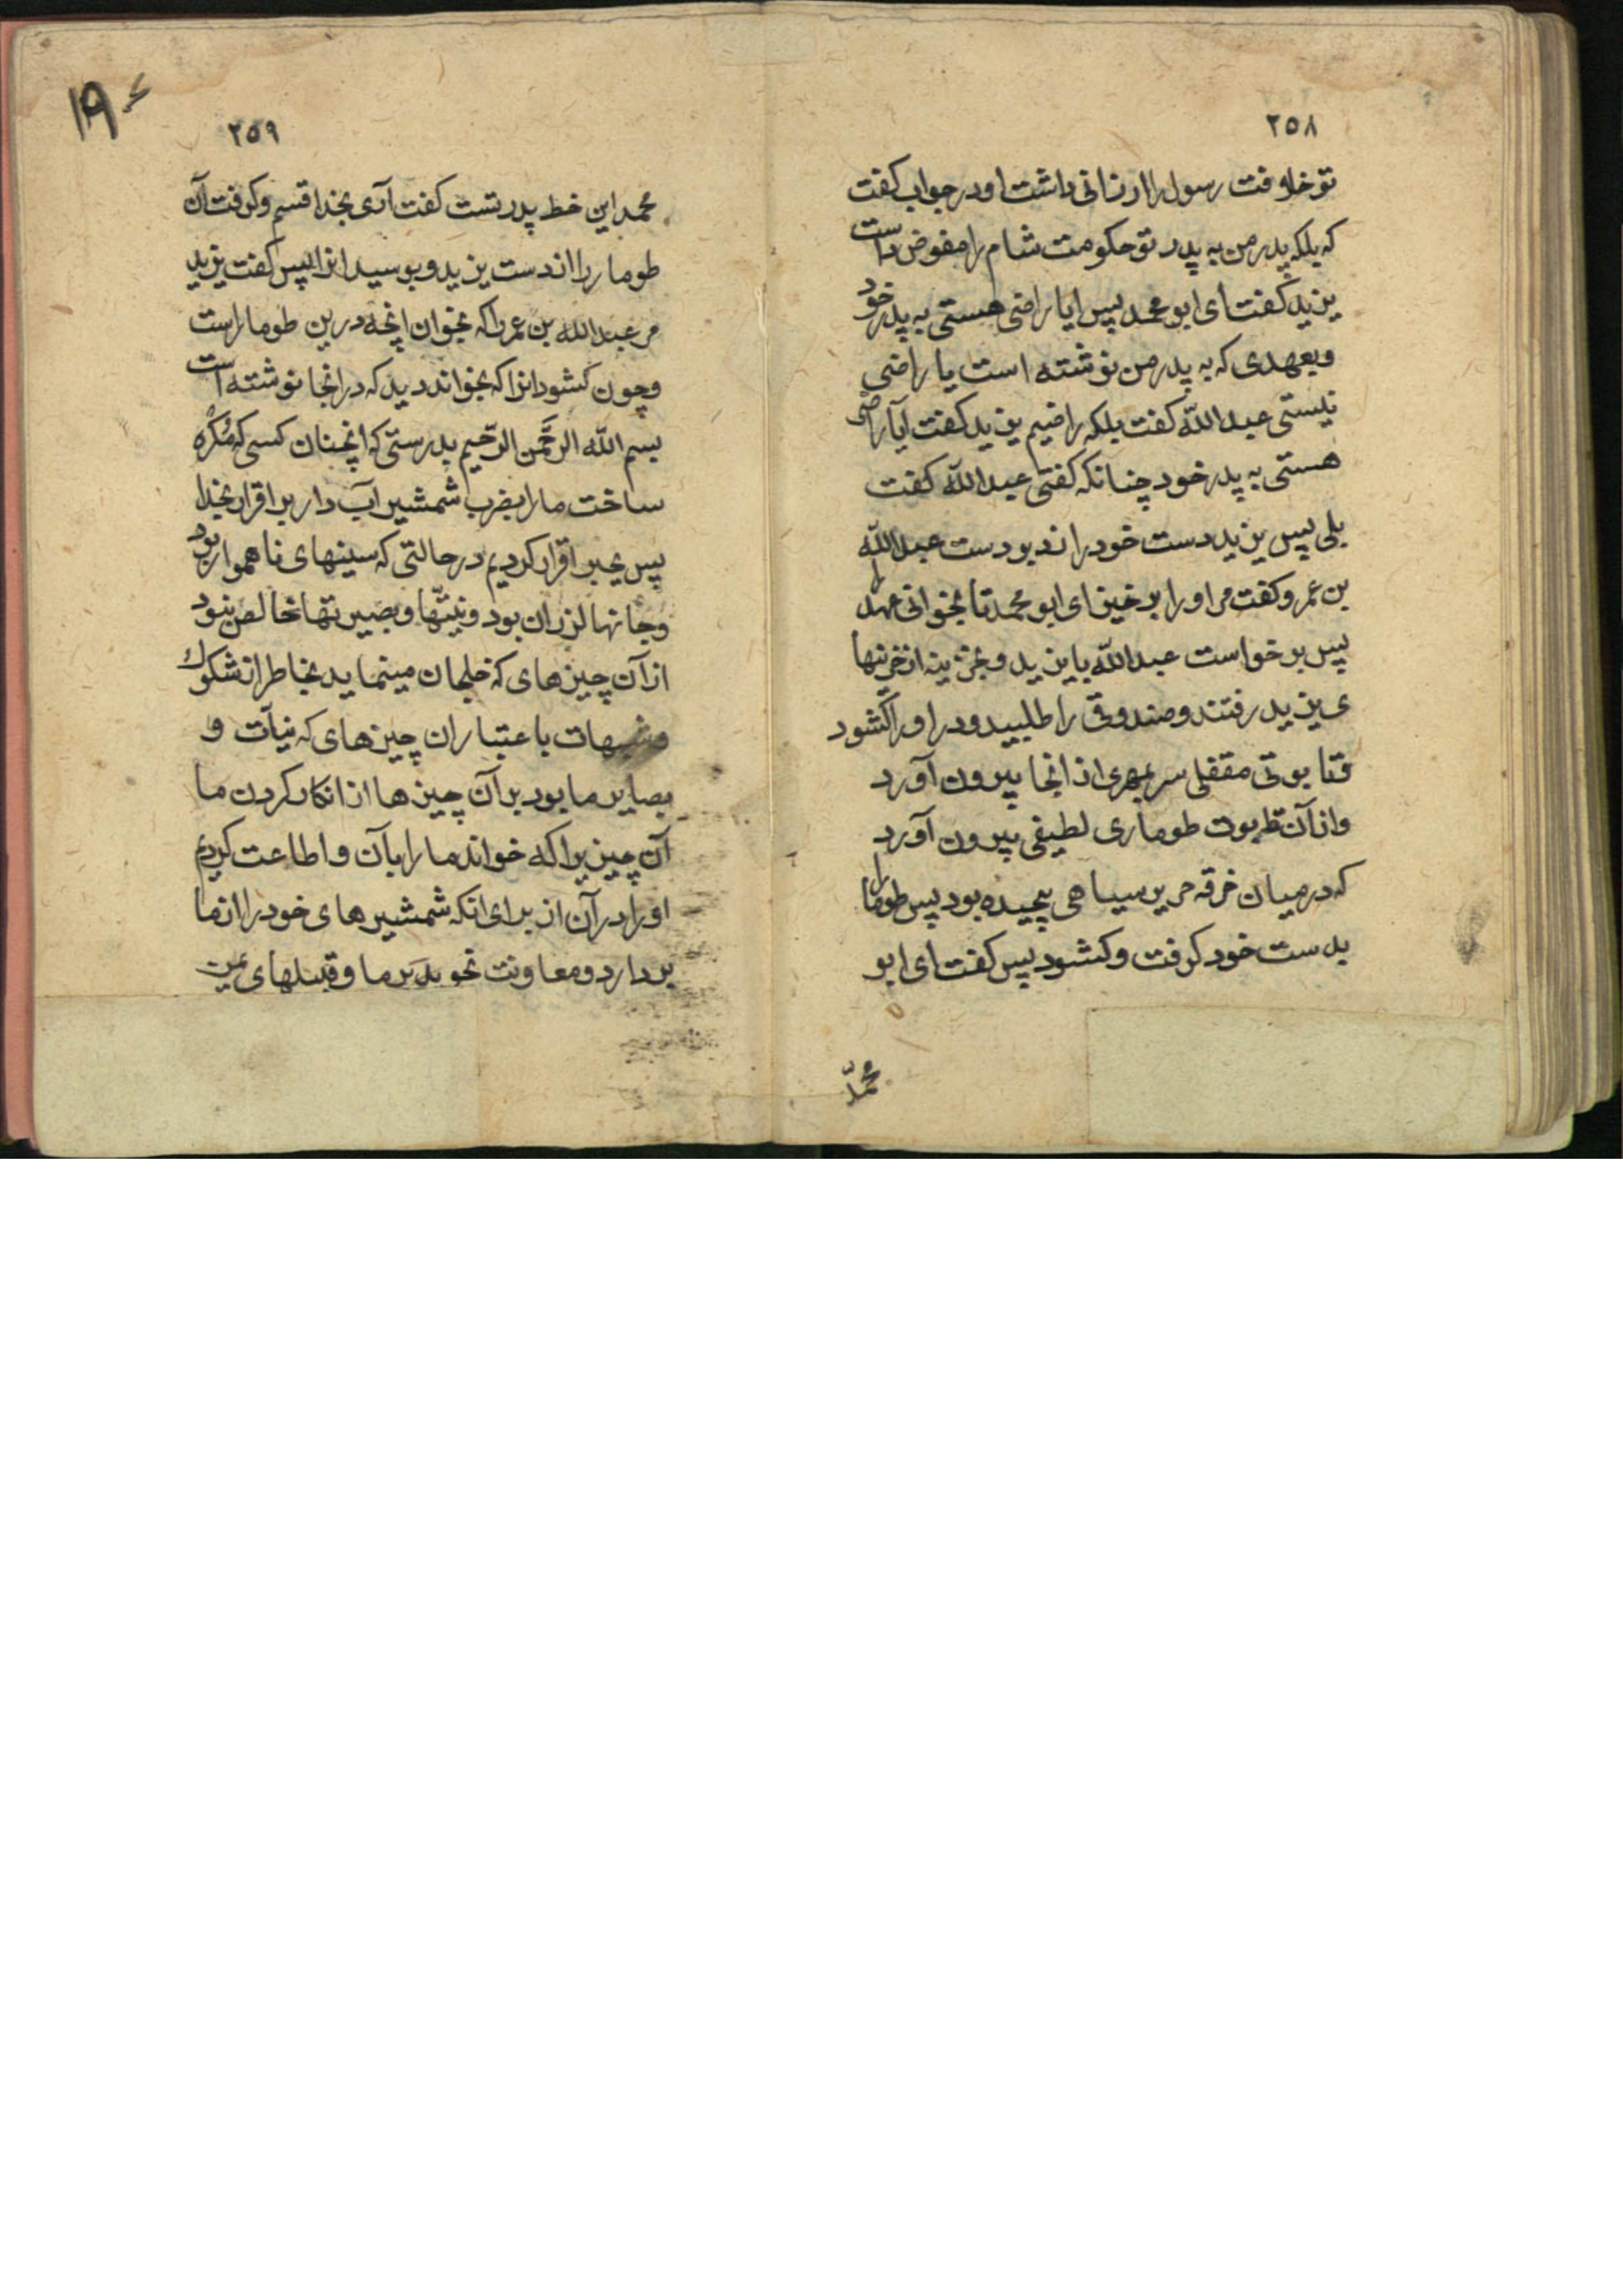 ۲۵۸
تو خلافت رسول را ارزانی داشت او در جواب کفت
که بلکه پدر من به پدر تو حکومت شام را مفوض داشت
یزید کفت ای ابو محمد پس ایا راضی هستی به پدر خود
و بعهدی که به پدر من نوشته است یا راضی
نیستی عبدالله کفت بلکه راضیم یزید کفت آیا راضی
هستی به پدر خود چنانکه کفتی عبدالله کفت
بلی پس یزید دست خود را زد بر دست عبدالله
بن عمر و کفت مر او را برخیز ای ابو محمد تا بخوانی عهد را
پس برخواست عبدالله با یزید و بخزینه از خزینها
ی یزید رفتند و صندوقی را طلبید و در او را کشود
تابوتی مقفلی سر بمهری از انجا بیرون آورد
و از آن تابوت طوماری لطیفی بیرون آورد
که در میان خرقه حریر سیاهی پیچیده بود پس طومار را
بدست خود کرفت و کشود پس کفت ای ابو
محمد
۱۹
۲۵۹
محمد این خط پدر تست کفت آری بخدا قسم و کرفت آن
طومار را از دست یزید و بوسید انرا پس کفت یزید
مر عبدالله بن عمر را که بخوان انچه درین طومار است
و چون کشود انرا که بخواند دید که در انجا نوشته است
بسم الله الرحمن الرحیم بدرستی که انچنان کسی که مکره
ساخت ما را بضرب شمشیر آب دار بر اقرار بخدا
پس بجبر اقرار کردیم در حالتی که سینهای ناهموار بود
و جانها لرزان بود و نیتها و بصیرتها خالص نبود
از آن چیزهای که خلجان مینماید بخاطر از شکوک
و شبهات باعتبار ان چیزهای که نیات و
بصایر ما بود بر آن چیزها از انکار کردن ما
آن چیزیرا که خواند ما را بآن و اطاعت کردیم
او را در آن از برای انکه شمشیرهای خود را از ما
بردارد و معاونت نجوید بر ما و قبیلهای یمن